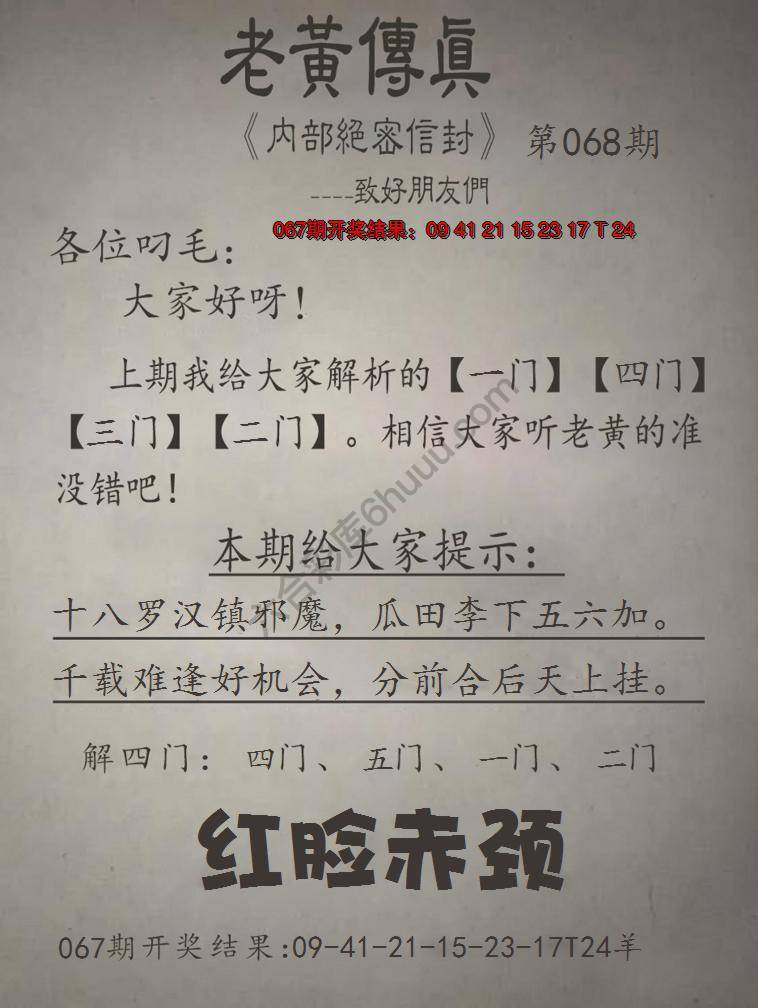 老黃傳眞
《内部絕密信封》 第068期
----致好朋友們
067期开奖结果：09 41 21 15 23 17 T 24
各位叼毛：
大家好呀！
上期我给大家解析的【一门】【四门】
【三门】【二门】。相信大家听老黄的准
没错吧！
六合彩库6huuu.com
本期给大家提示：
十八罗汉镇邪魔，瓜田李下五六加。
千载难逢好机会，分前合后天上挂。
解四门： 四门、 五门、 一门、 二门
红脸赤颈
067期开奖结果:09-41-21-15-23-17T24羊